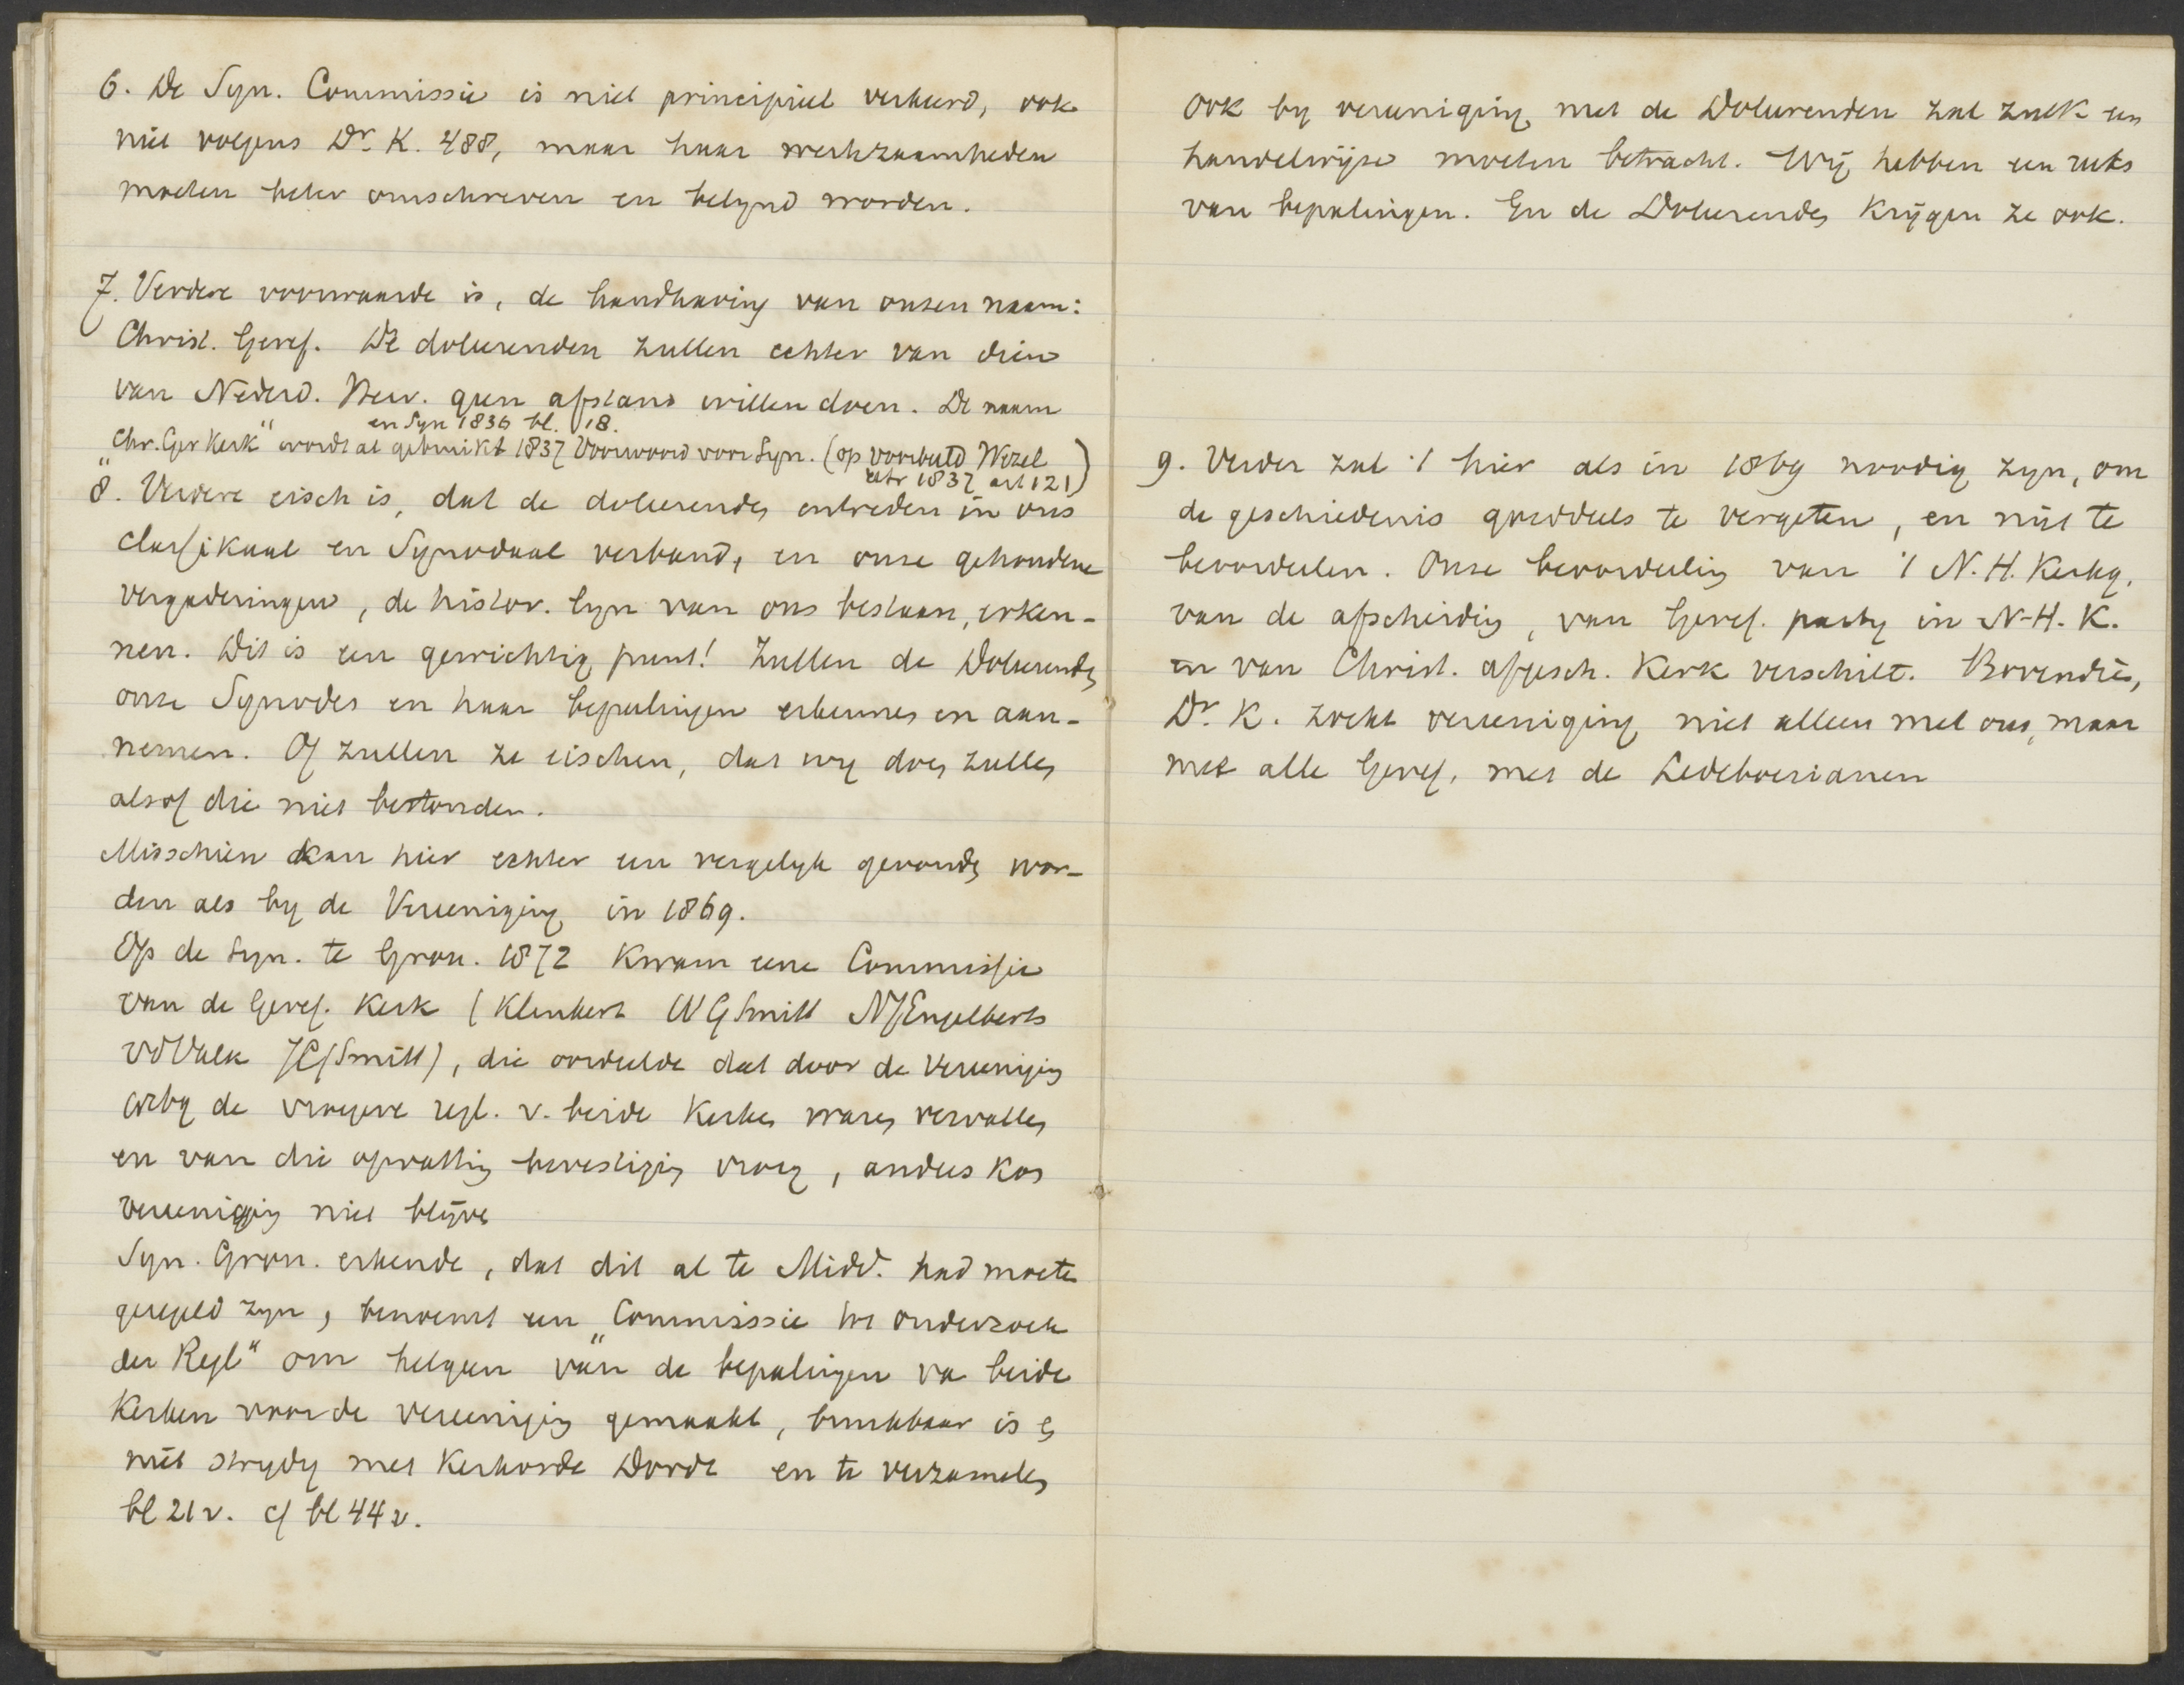 6. De Syn. Commissie is niet principieel verkeerd, ook
niet volgens Dr. K. 488, maar haar werkzaamheden
moeten beter omschreven en belynd worden.
7. Verdere voorwaarde is, de handhaving van onzen naam:
Christ. Geref. De doleerenden zullen echter van dien
van Nederd. Herv. geen afstand willen doen. De naam
en Syn 1836 bl. 18.
"Chr. Ger Kerk" wordt al gebruikt 1837 Voorwoord voor Syn. (op voorbeeld Wezel
Utr 1837 art 121)
8. Verdere eisch is, dat de doleerenden intreden in ons
classikaal en Synodaal verband, en onze gehoudene
vergaderingen, de histor. lyn van ons bestaan, erken-
nen. Dit is een gewichtig punt! Zullen de Doleerenden
onze Synodes en haar bepalingen erkennen en aan-
nemen. Of zullen ze eischen, dat wy doen zullen
alsof die niet bestonden.
Misschien kan hier echter een vergelyk gevonden wor-
den als by de Vereeniging in 1869.
Op de Syn. te Gron. 1872 kwam eene Commissie
van de Geref. Kerk (Klinkert W G Smitt NJEngelberts
VdValk Smitt), die oordeelde dat door de Vereeniging
de vroegere regl. v. beide Kerken waren vervallen
en van die opvatting bevestiging vroeg, anders kon
vereeniging niet blijven
Syn. Gron. erkende, dat dit al te Midd. had moeten
geregeld zyn, benoemt een "Commissie tot onderzoek
der Regl" om hetgeen van de bepalingen va beide
Kerken voor de vereeniging gemaakt, bruikbaar is en
niet strydig met Kerkorde Dordt en te verzamelen
bl 21 v. cf bl 44 v.
Ook by vereeniging met de Doleerenden zal zulk een
handelwijze moeten betracht. Wij hebben een reeks
van bepalingen. En de Doleerenden krijgen ze ook.
9. Verder zal 't hier als in 1869 noodig zyn, om
de geschiedenis grootdeels te vergeten, en niet te
beoordeelen. Onze beoordeeling van 't N. H. Kerkg.
van de afscheiding, van Geref. party in N-H. K.
en van Christ. afgesch. Kerk verschilt. Bovendien,
Dr. K. zoekt vereeniging niet alleen met ons, maar
met alle Geref, met de Ledeboerianen